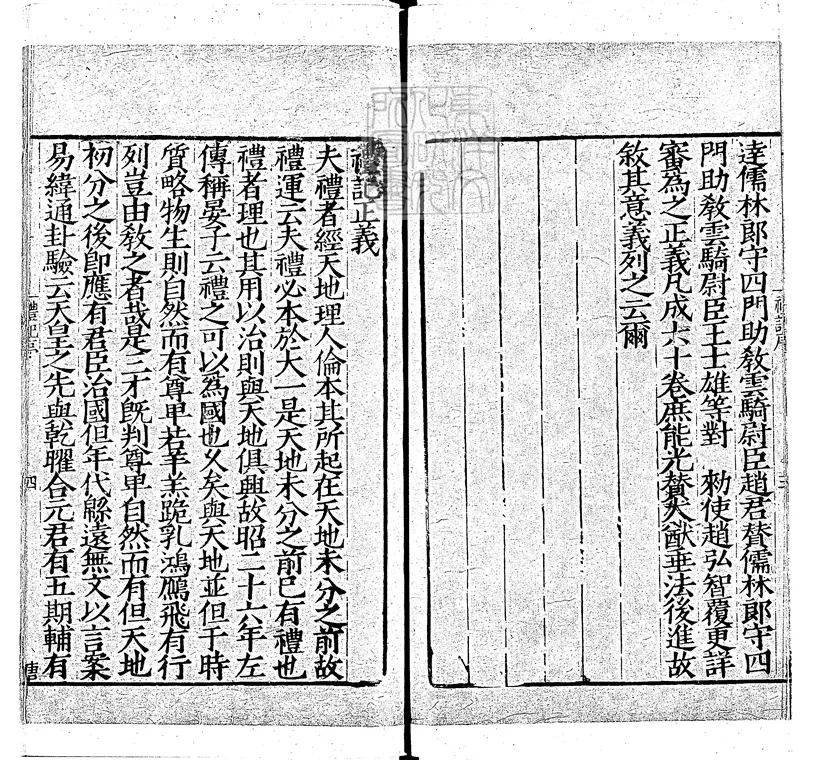 逵儒林郎守四門助教雲騎尉臣趙君贊儒林郎守四
門助教雲騎尉臣王士雄等對 勑使趙弘智覆更詳
審為之正義凡成六十卷庶能光贊大猷垂法後進故
敘其意義列之云爾
禮記正義
夫禮者經天地理人倫本其所起在天地未分之前故
禮運云夫禮必本於大一是天地未分之前已有禮也
禮者理也其用以治則與天地俱興故昭二十六年左
傳稱晏子云禮之可以為國也久矣與天地並但于時
質略物生則自然而有尊卑若羊羔跪乳鴻鴈飛有行
列豈由教之者哉是三才既判尊卑自然而有但天地
初分之後即應有君臣治國但年代緜遠無文以言案
易緯通卦驗云天皇之先與乾曜合元君有五期輔有
禮記序
三
禮記序
四